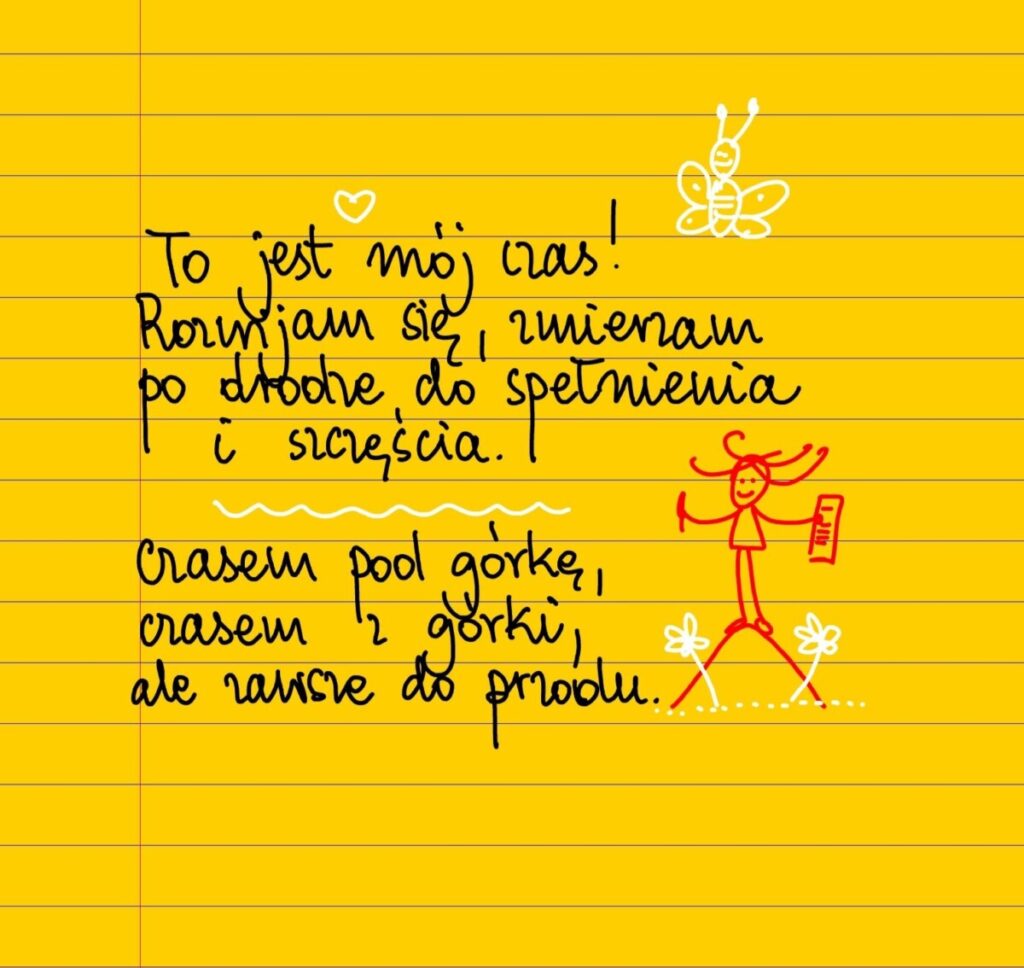 To jest mój czas!
Rozwijam się, zmierzam
po drodze do spełnienia
i szczęścia.
Czasem pod górkę,
czasem z górki,
ale zawsze do przodu.